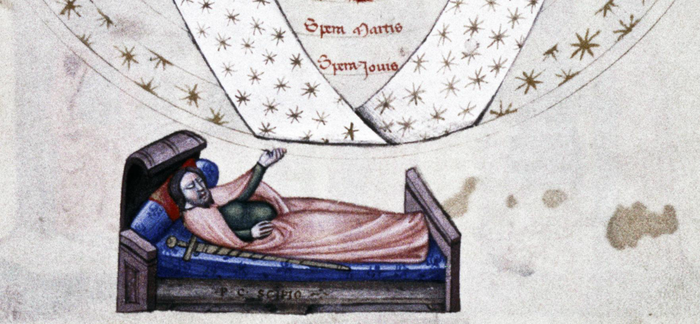 Spera Martis
Spera Jouis
P. C. SCIPIO